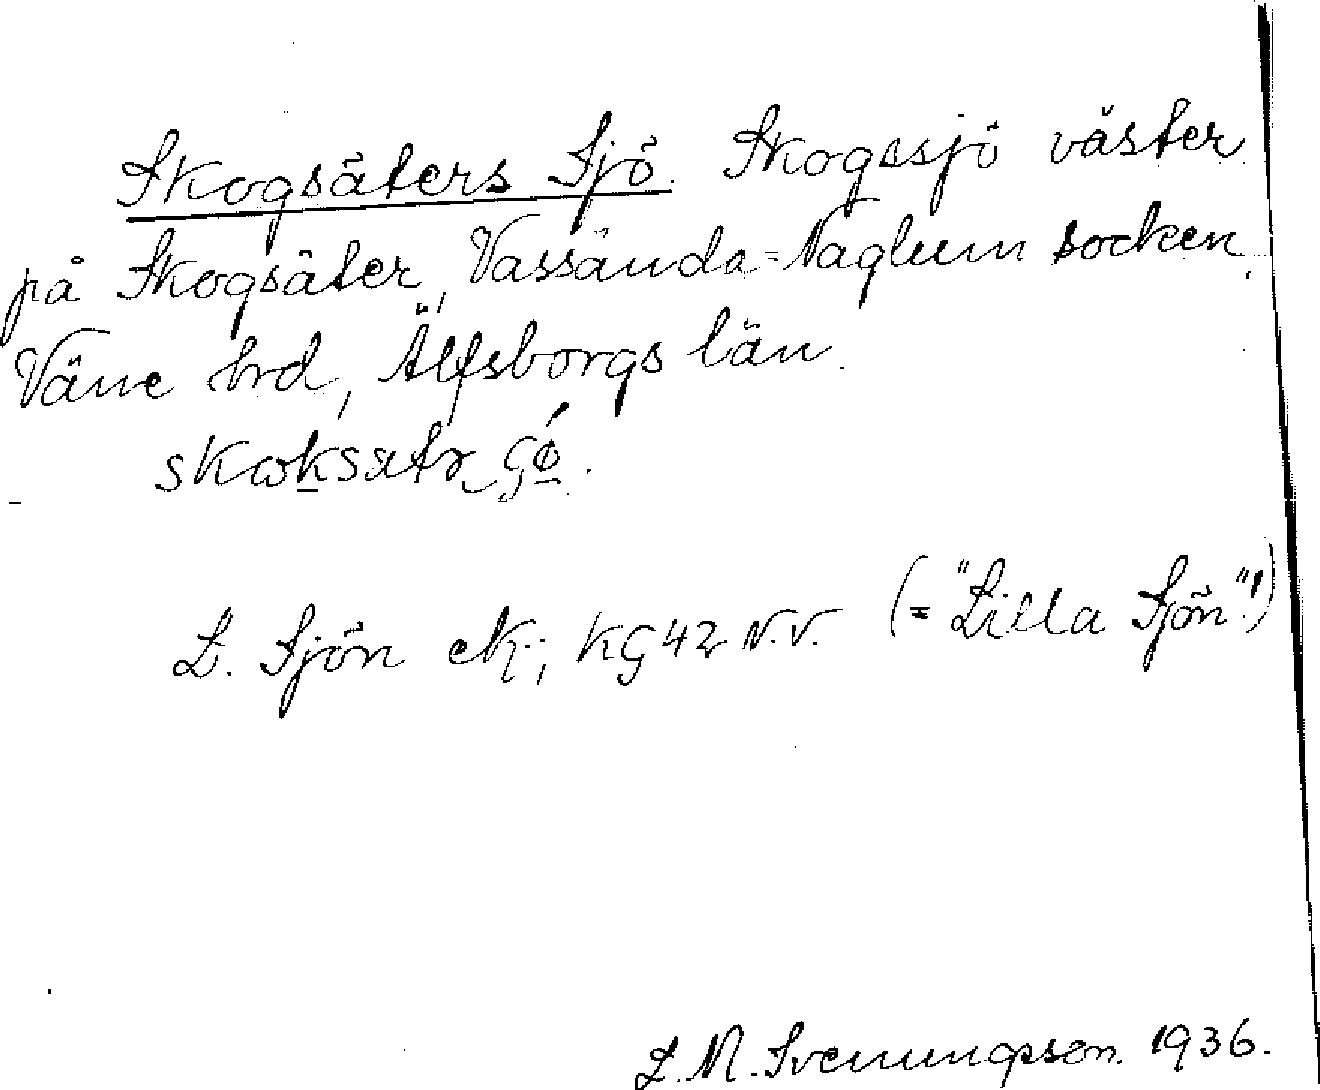 Skogsäters Sjö. Skogssjö väster
på Skogsäter, Vassända-Naglum socken,
Väne hrd, Älfsborgs län.
L. Sjön ek.; KG 42 N.V. (= "Lilla Sjön"!)
L. M. Svenungsson. 1936.